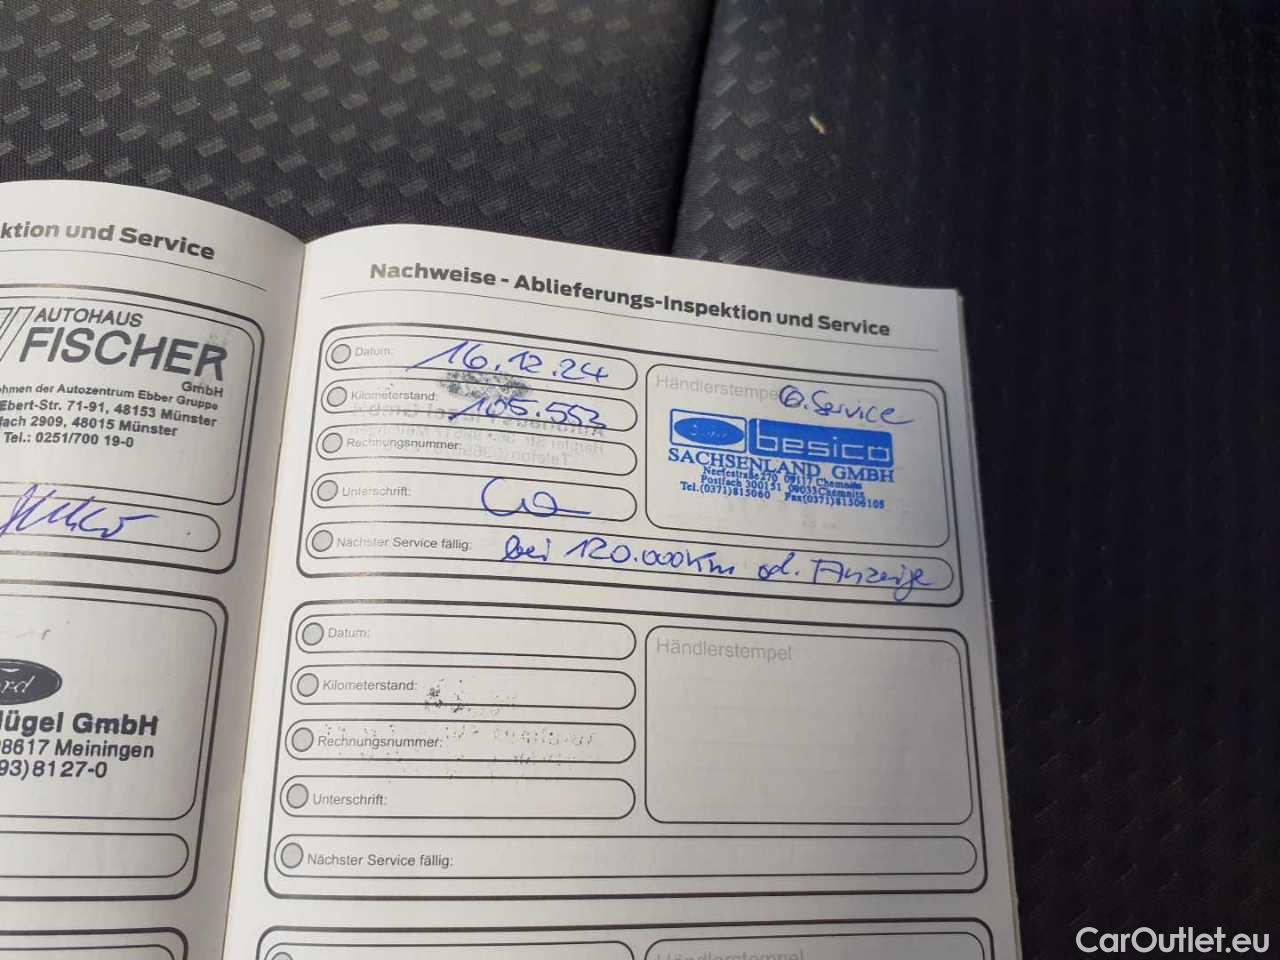 ktion und Service
AUTOHAUS
FISCHER
GmbH
hmen der Autozentrum Ebber Gruppe
Ebert-Str. 71-91, 48153 Münster
fach 2909, 48015 Münster
Tel.: 0251/700 19-0
ord
lügel GmbH
98617 Meiningen
93)8127-0
Nachweise - Ablieferungs-Inspektion und Service
Datum: 16.12.24
Kilometerstand: 105.553
Rechnungsnummer:
Unterschrift:
Nächster Service fällig: bei 120.000Km od. Anzeige
Händlerstempel
6. Service
Ford besico
SACHSENLAND GMBH
Neefestraße 270 09117 Chemnitz
Postfach 300151 09033 Chemnitz
Tel.(0371)815060 Fax(0371)81506105
Datum:
Kilometerstand:
Rechnungsnummer:
Unterschrift:
Nächster Service fällig:
Händlerstempel
Händlerstempel
CarOutlet.eu